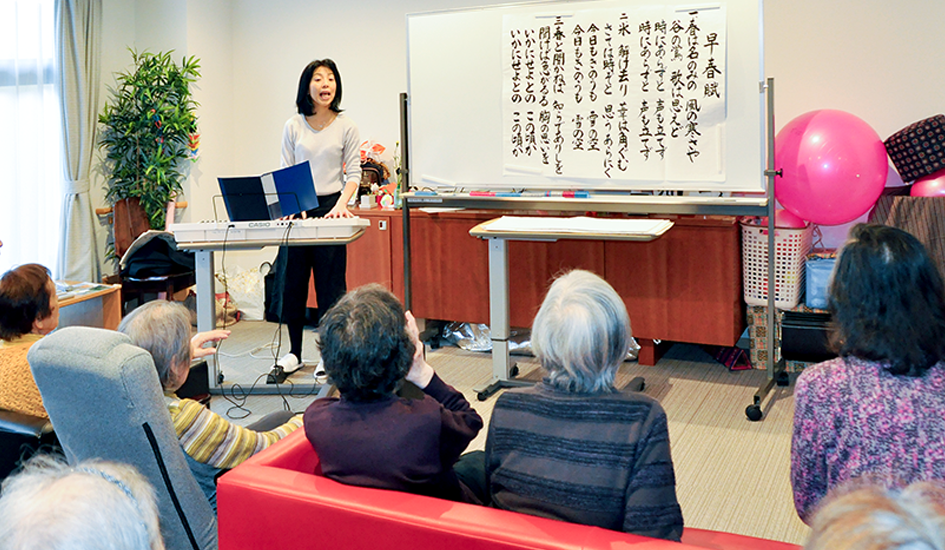 早春賦
一 春は名のみの 風の寒さや
谷の鶯 歌は思えど
時にあらずと 声も立てず
時にあらずと 声も立てず
二 氷 解け去り 葦は角ぐむ
さては時ぞと 思うあやにく
今日もきのうも 雪の空
今日もきのうも 雪の空
三 春と聞かねば 知らでありしを
聞けば急かるる 胸の思いを
いかにせよとの この頃か
いかにせよとの この頃か
CASIO